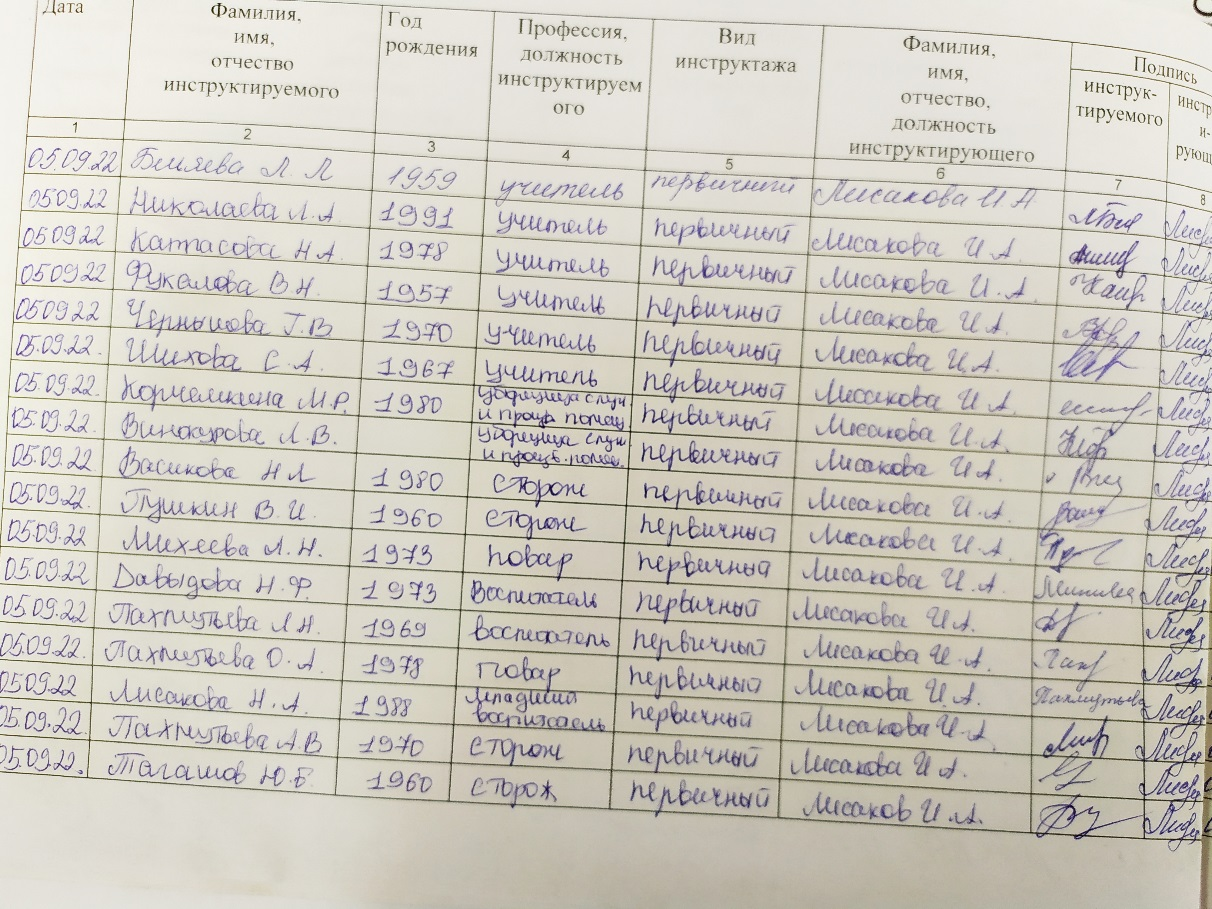 Дата Фамилия, имя, отчество инструктируемого Год рождения Профессия, должность инструктируем ого Вид инструктажа Фамилия, имя, отчество, должность инструктирующего Подпись инструк- тируемого инстр и- рующ
1 2 3 4 5 6 7 8
05.09.22 Беляева Л. Л 1959 учитель первичный Лисакова И А
05.09.22 Николаева Л.А. 1991 учитель первичный Лисакова И А.
05.09.22 Каттасова Н А. 1978 учитель первичный Лисакова И. А.
05.09.22 Фукалова В.Н. 1957 учитель первичный Лисакова И А.
05.09.22 Чернышова Г.В 1970 учитель первичный Лисакова И.А.
05.09.22. Шихова С. А. 1967 учитель первичный Лисакова И А.
05.09.22. Корчемкина М.Р. 1980 уборщица служ и произв помещ первичный Лисакова И.А.
05.09.22. Винокурова Л.В. уборщица служ и произв. помещ. первичный Лисакова И.А.
05.09.22 Васикова Н Л 1980 сторож первичный Лисакова И.А.
05.09.22. Пушкин В.И. 1960 сторож первичный Лисакова И.А.
05.09.22. Михеева Л.Н. 1973 повар первичный Лисакова И.А.
05.09.22 Давыдова Н.Ф. 1973 Воспитатель первичный Лисакова И А.
05.09.22 Пахмутьева Л.Н. 1969 воспитатель первичный Лисакова И.А.
05.09.22. Пахмутьева О.А. 1978 повар первичный Лисакова И.А. Пахмутьева
05.09.22 Лисакова Н.А. 1988 младший воспитатель первичный Лисакова И.А.
05.09.22. Пахмутьева А.В 1970 сторож первичный Лисакова И А.
05.09.22. Талашов Ю.Б. 1960 сторож первичный Лисаков И.А.